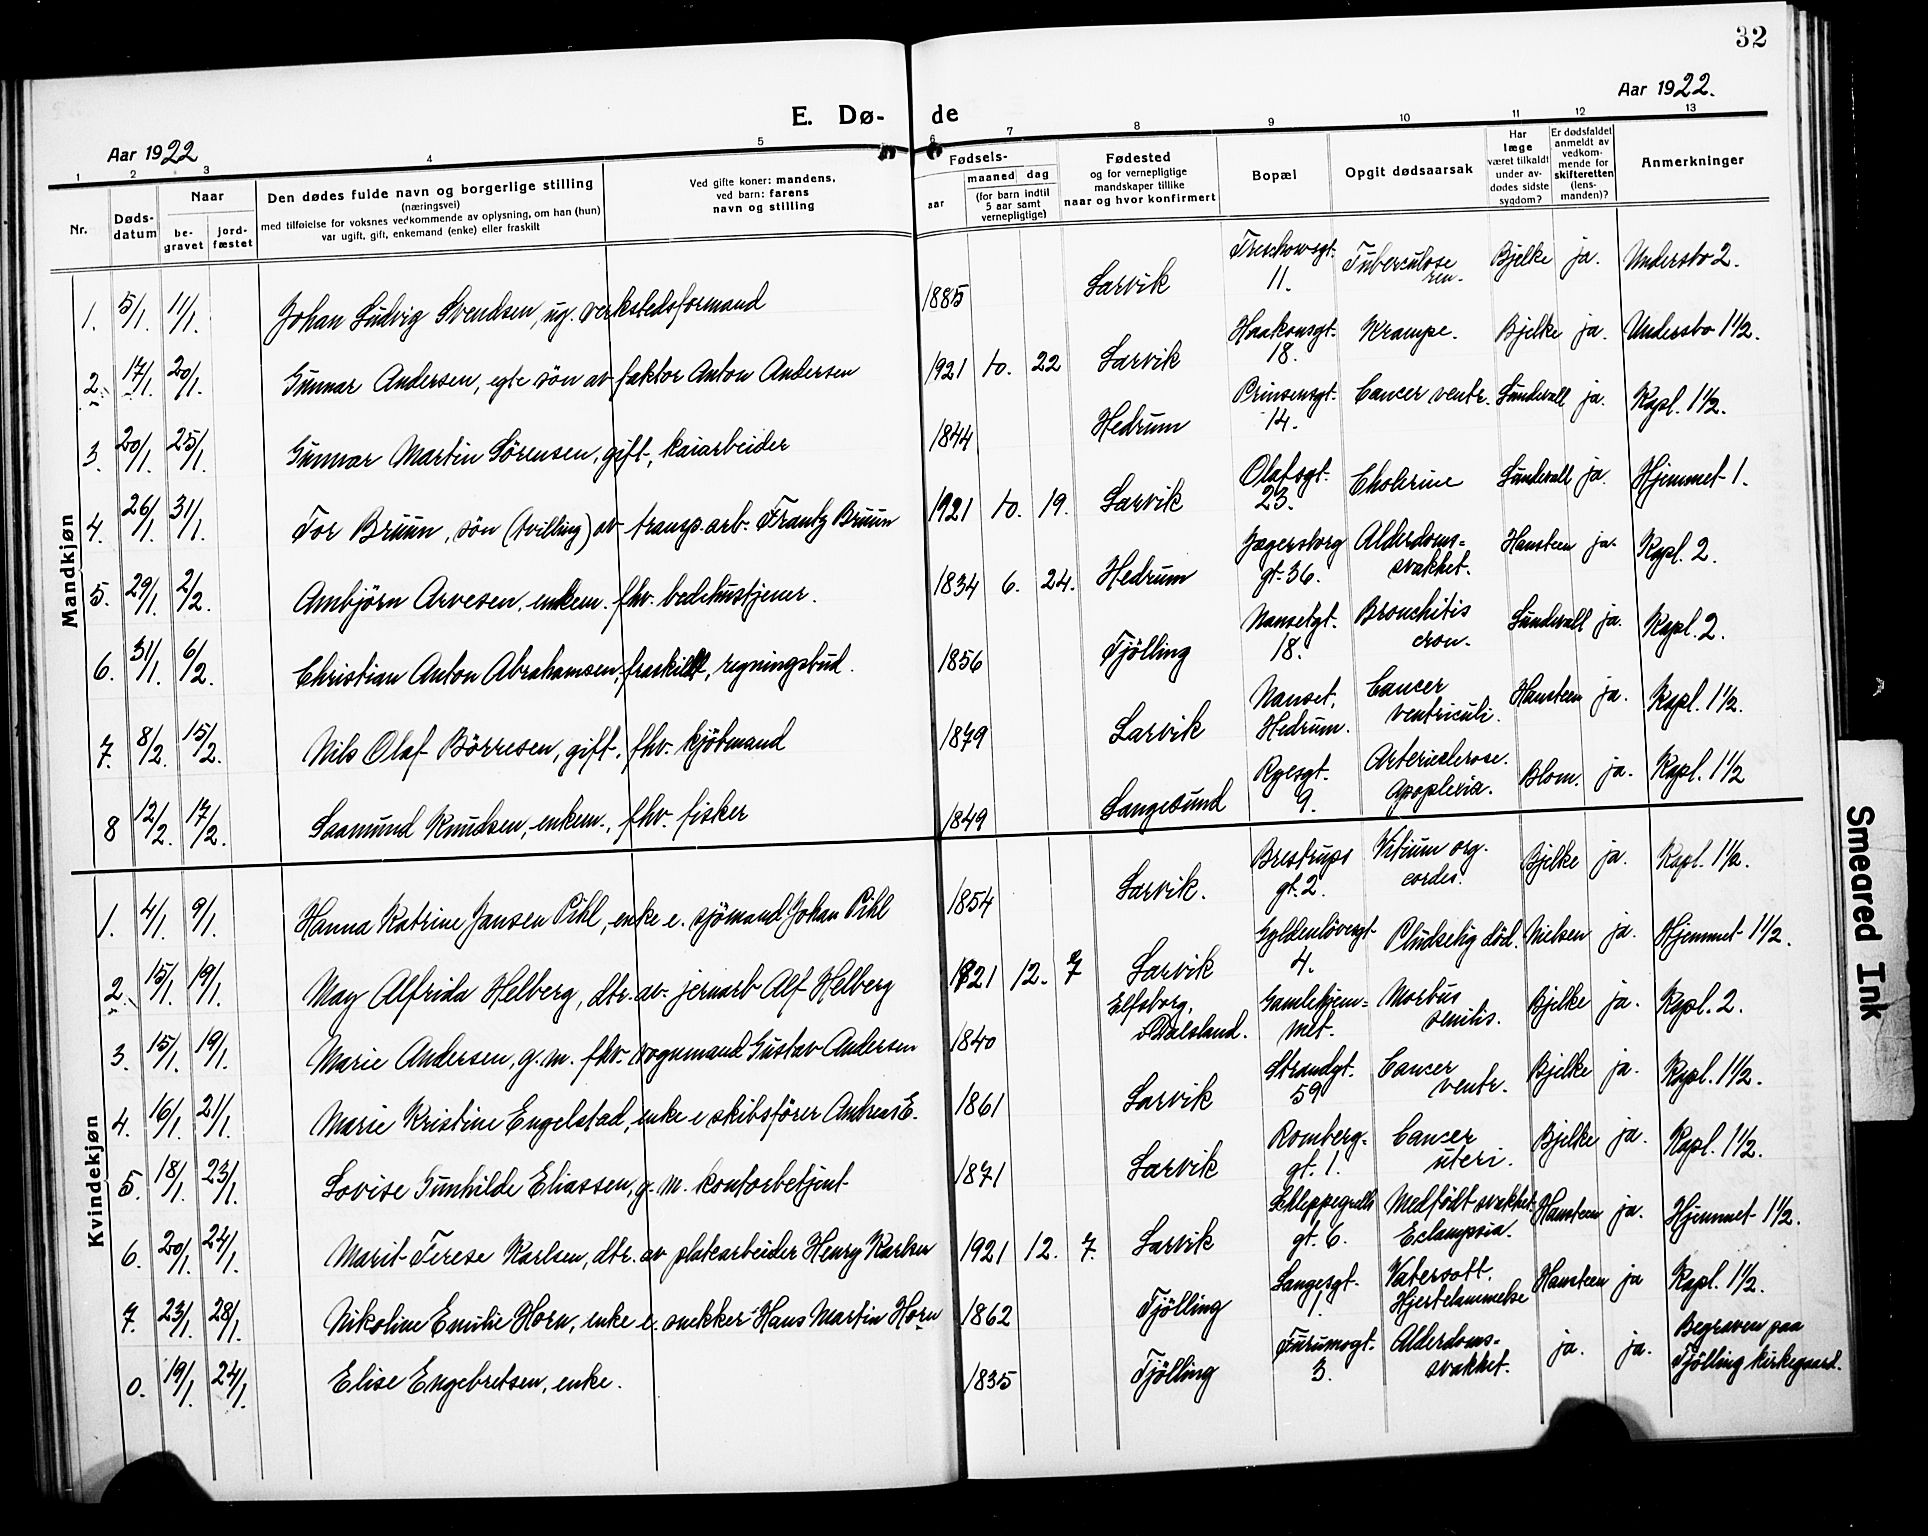 32
Aar 1922.
E. Dø- de
Aar 1922
1 2 3 4 5 6 7 8 9 10 11 12 13
Nr.
Døds-
datum
Naar
be-
gravet
jord-
fæstet
Den dødes fulde navn og borgerlige stilling
(næringsvei)
med tilføielse for voksnes vedkommende av oplysning, om han (hun)
var ugift, gift, enkemand (enke) eller fraskilt
Ved gifte koner: mandens,
ved barn: farens
navn og stilling
Fødsels-
aar
maaned dag
(for barn indtil
5 aar samt
vernepligtige)
Fødested
og for vernepligtige
mandskaper tillike
naar og hvor konfirmert
Bopæl
Opgit dødsaarsak
Har
læge
været tilkaldt
under av-
dødes sidste
sygdom?
Er dødsfaldet
anmeldt av
vedkom-
mende for
skifteretten
(lens-
manden)?
Anmerkninger
Mandkjøn
1. 5/1. 11/1. Johan Ludvig Svendsen, ug. verkstedsformand 1885 Larvik Treschowsgt. 11. Tuberculose ren. Bjelke ja. Undersbo 2.
2. 17/1. 20/1. Gunnar Andersen, egte søn av faktor Anton Andersen 1921 10. 22 Larvik Haakonsgt. 18. Krampe. Bjelke ja. Undersbo 1 1/2.
3. 20/1. 25/1. Gunnar Martin Sørensen, gift, kaiarbeider 1844 Hedrum Prinsensgt. 14. Cancer ventr. Sundwall ja. Kapl. 1 1/2.
4. 26/1. 31/1. Tor Bruun, søn (tvilling) av transp. arb. Frantz Bruun 1921 10. 19. Larvik Olafsgt. 23. Cholerine Sundwall ja. Hjemmet 1.
5. 29/1. 2/2. Ambjörn Arvesen, enkem. fhv. bedehustjener. 1834 6. 24. Hedrum Jægersborg gt. 36. Alderdoms= svakhet. Hansteen ja. Kapl. 2.
6. 31/1. 6/2. Christian Anton Abrahamsen, fraskilt, regningsbud. 1856 Tjölling Nansetgt. 18. Bronchitis cron. Sundwall ja. Kapl. 2.
7. 8/2. 15/2. Nils Olaf Börresen, gift, fhv. kjöbmand 1879 Larvik Nanset, Hedrum. Cancer ventriculi. Hansteen ja. Kapl. 1 1/2.
8 12/2. 17/2. Saamund Knudsen, enkem., fhv. fisker 1849 Langesund Ryesgt. 9. Arteriosclerose. Apoplexia. Blom. ja. Kapl. 1 1/2
Kvindekjøn
1. 4/1. 9/1. Hanna Katrine Jansen Pihl, enke e. sjömand Johan Pihl 1854 Larvik. Brestrups gt. 2. Vitium org. cordis. Bjelke ja. Kapl. 1 1/2.
2. 15/1. 19/1. May Alfrida Helberg, dtr. av jernarb Alf Helberg 1921 12. 7 Larvik Gyldenlövesgt 4. Pludselig död. Nielsen ja. Hjemmet 1 1/2.
3. 15/1. 19/1. Marie Andersen, g. m. fhv. vognmand Gustav Andersen 1840 Elfsborg, Dalsland. Gamlehjem= met. Morbus senilis. Bjelke ja. Kapl. 2.
4. 16/1. 21/1. Marie Kristine Engelstad, enke e skibsförer Andreas E. 1861 Larvik Strandgt. 59 Cancer ventr. Bjelke ja. Kapl. 1 1/2.
5. 18/1. 23/1. Lovise Gunhilde Eliassen, g. m. kontorbetjent 1871 Larvik Romberg- gt. 1. Cancer uteri. Bjelke ja. Kapl. 1 1/2.
6. 20/1. 24/1. Marit Terese Karlsen, dtr. av platearbeider Henry Karlsen 1921 12. 7. Larvik Schleppegrells gt. 6. Medfödt svakhet Eclampsia. Hansteen ja. Hjemmet 1 1/2.
7. 23/1. 28/1. Nikoline Emilie Horn, enke e. snekker Hans Martin Horn 1862 Tjölling Langesgt. 1. Vatersott. Hjertelammelse Hansteen ja Kapl. 1 1/2.
0. 19/1. 24/1. Elise Engebretsen, enke. 1835 Tjölling Furumogt. 3. Alderdoms= svakhet. ja. ja. Begraven paa Tjölling kirkegaard.
Smeared Ink